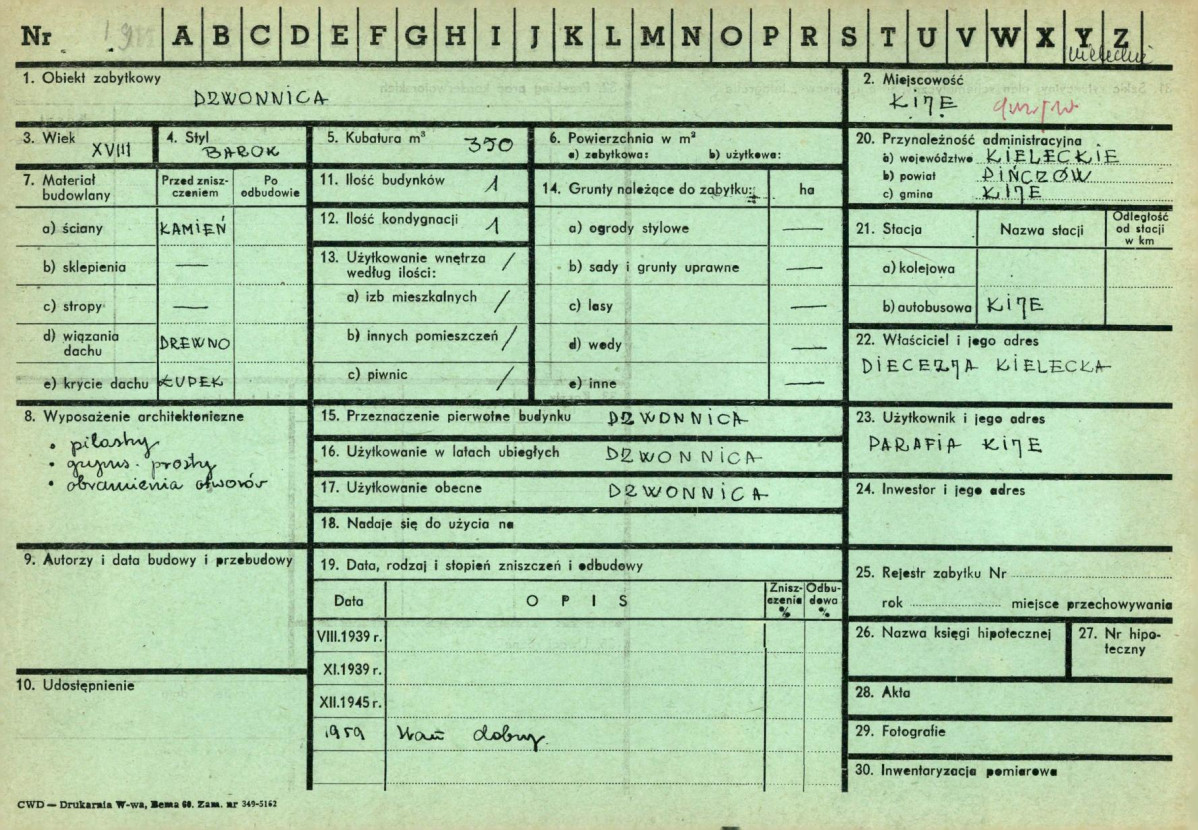 Nr A B C D E F G H I J K L M N O P R S T U V W X Y Z
1. Obiekt zabytkowy
DZWONNICA
2. Miejscowość
KIJE
3. Wiek XVIII
4. Styl BAROK
5. Kubatura m³ 350
6. Powierzchnia w m²
a) zabytkowa: b) użytkowa:
20. Przynależność administracyjna
a) województwo KIELECKIE
b) powiat PIŃCZÓW
c) gmina KIJE
7. Materiał budowlany
Przed zniszczeniem
Po odbudowie
a) ściany KAMIEŃ
b) sklepienia —
c) stropy —
d) wiązania dachu DREWNO
e) krycie dachu ŁUPEK
11. Ilość budynków 1
12. Ilość kondygnacji 1
13. Użytkowanie wnętrza według ilości: /
a) izb mieszkalnych /
b) innych pomieszczeń /
c) piwnic /
14. Grunty należące do zabytku: ha
a) ogrody stylowe —
b) sady i grunty uprawne —
c) lasy —
d) wody —
e) inne —
21. Stacja
Nazwa stacji
Odległość od stacji w km
a) kolejowa
b) autobusowa KIJE
22. Właściciel i jego adres
DIECEZJA KIELECKA
8. Wyposażenie architektoniczne
• pilastry
• gzyms. prosty
• obramienia otworów
15. Przeznaczenie pierwotne budynku DZWONNICA
16. Użytkowanie w latach ubiegłych DZWONNICA
17. Użytkowanie obecne DZWONNICA
18. Nadaje się do użycia na
23. Użytkownik i jego adres
PARAFIA KIJE
24. Inwestor i jego adres
9. Autorzy i data budowy i przebudowy
10. Udostępnienie
19. Data, rodzaj i stopień zniszczeń i odbudowy
Data
OPIS
Zniszczenia %
Odbudowa %
VIII.1939 r.
XI.1939 r.
XII.1945 r.
1959 Stan dobry
25. Rejestr zabytku Nr
rok miejsce przechowywania
26. Nazwa księgi hipotecznej
27. Nr hipoteczny
28. Akta
29. Fotografie
30. Inwentaryzacja pomiarowa
CWD — Drukarnia W-wa, Bema 60. Zam. nr 349-5162